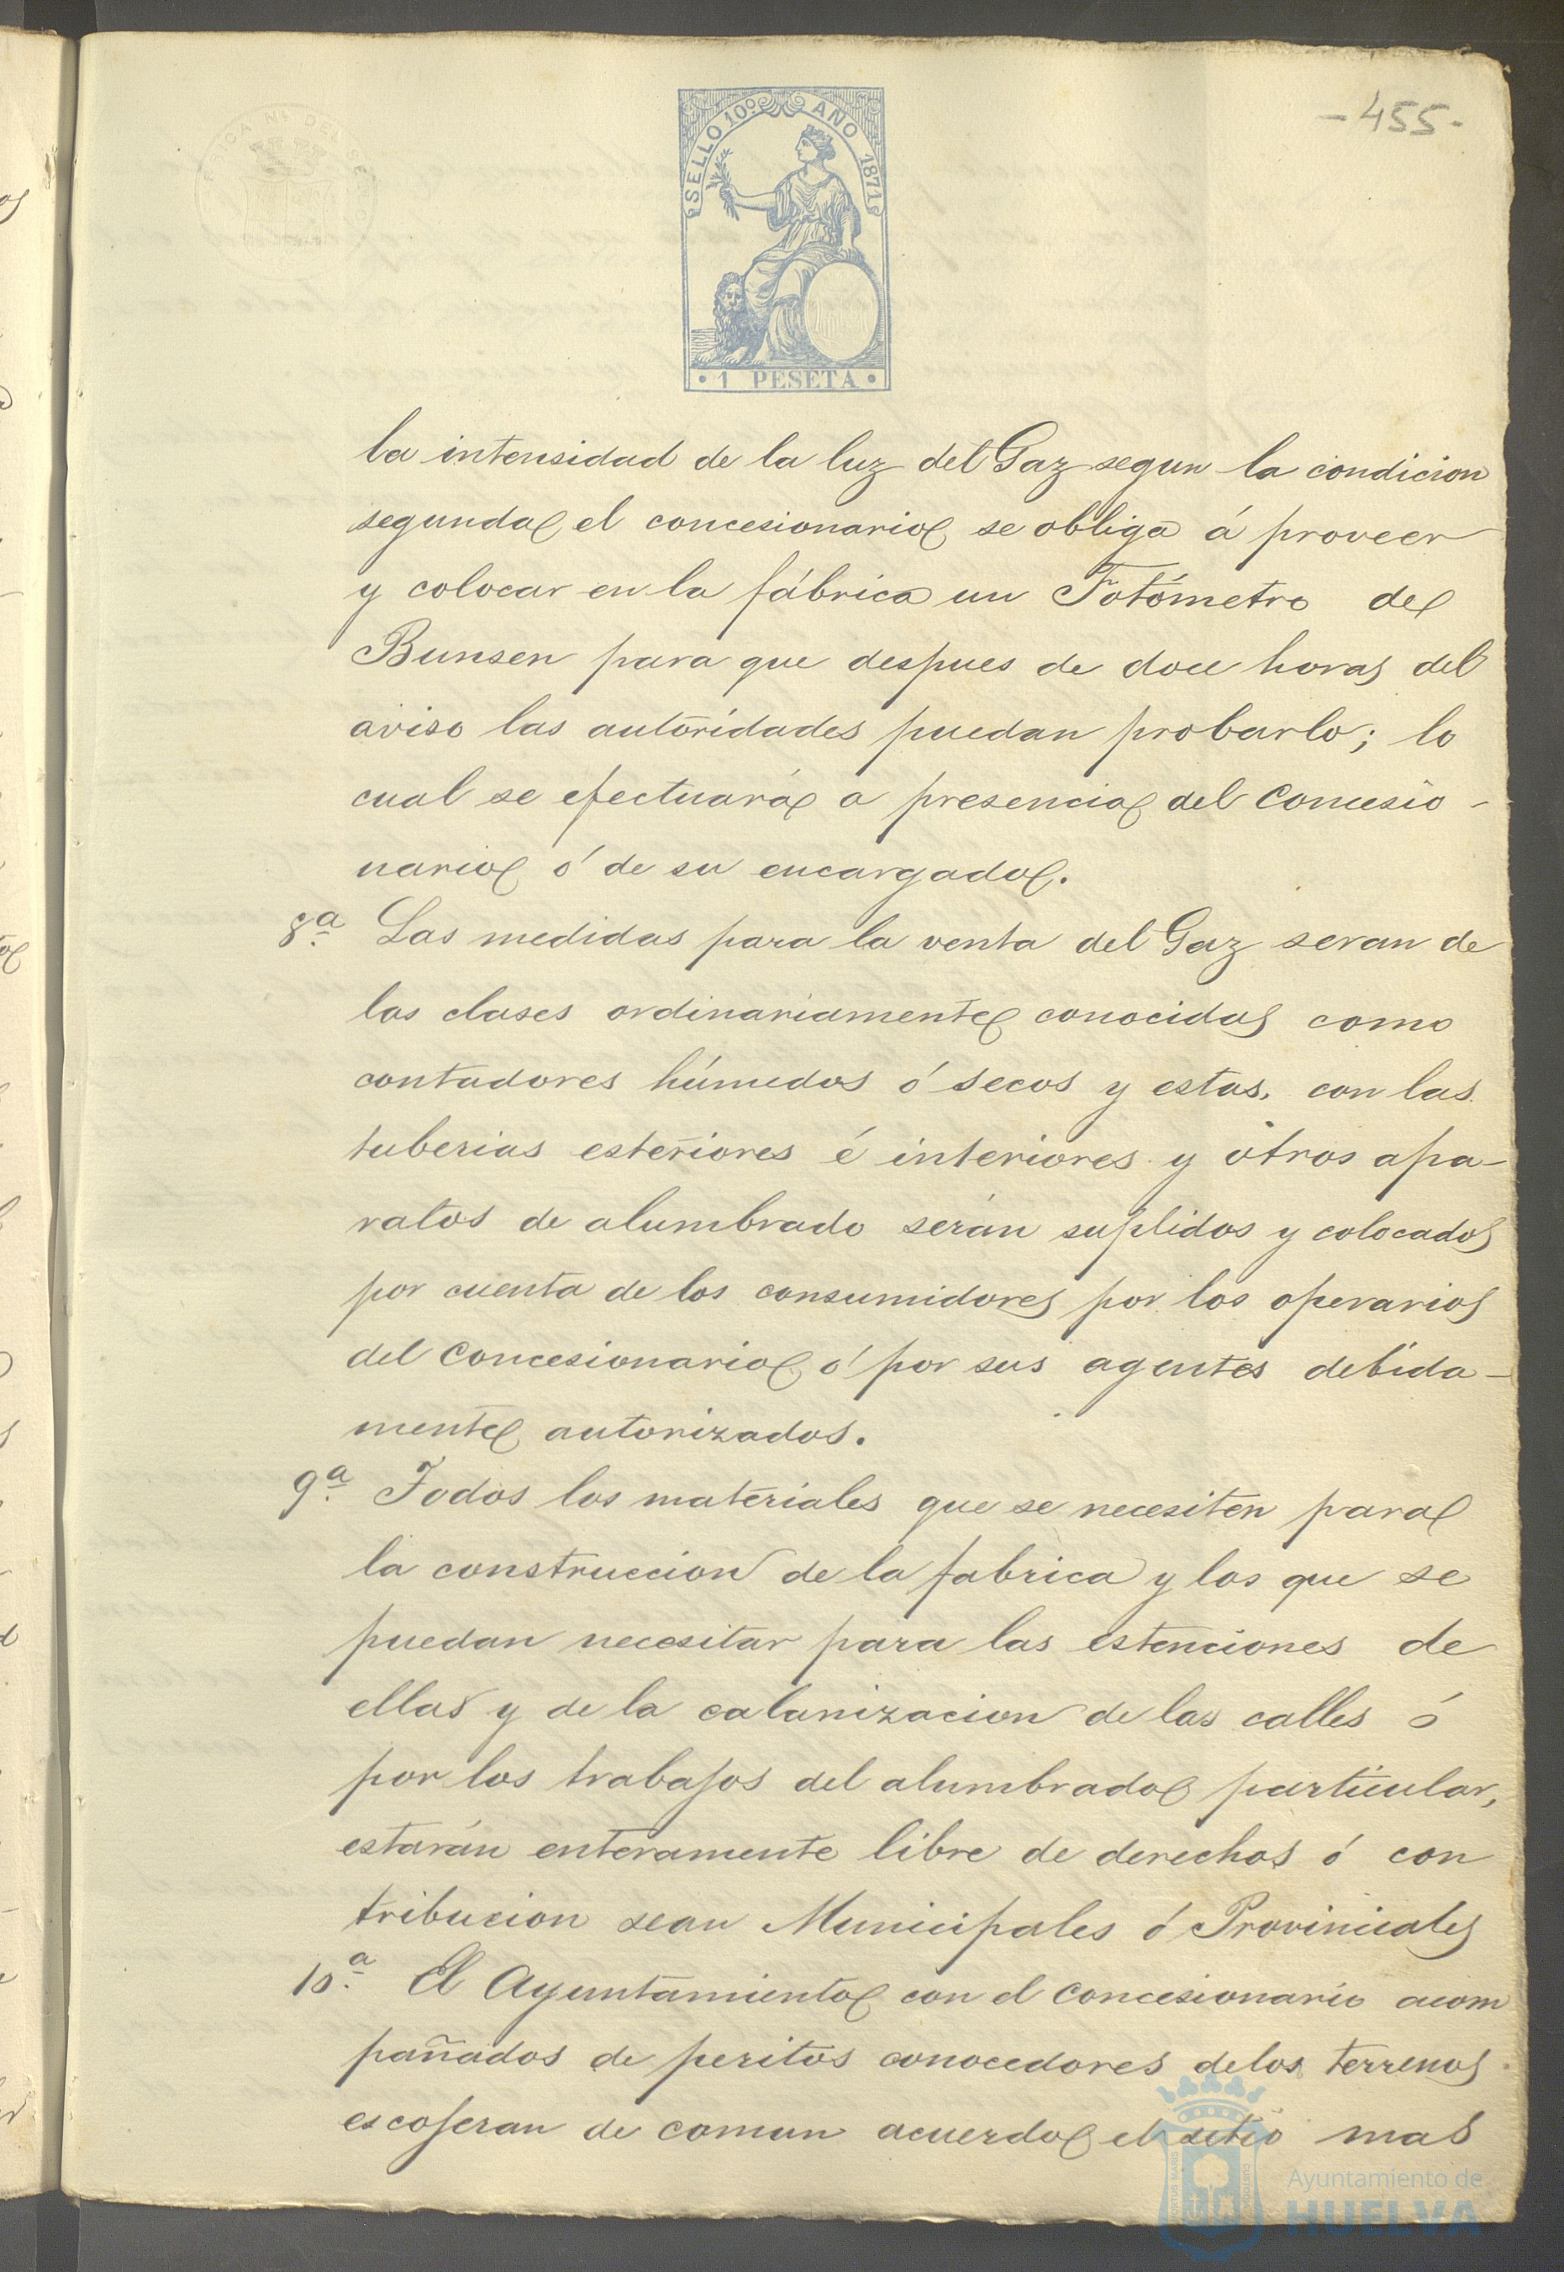 -455-
SELLO 10º AÑO 1871
1 PESETA
la intensidad de la luz del Gaz segun la condicion
segunda el concesionario se obliga á proveer
y colocar en la fábrica un Fotómetro de
Bunsen para que despues de doce horas del
aviso las autoridades puedan probarlo; lo
cual se efectuará a presencia del Concesio-
nario ó de su encargado.
8ª Las medidas para la venta del Gaz seran de
las clases ordinariamente conocidas como
contadores húmedos ó secos y estas, con las
tuberias esteriores é interiores y otros apa-
ratos de alumbrado serán suplidos y colocados
por cuenta de los consumidores por los operarios
del Concesionario ó por sus agentes debida-
mente autorizados.
9ª Todos los materiales que se necesiten para
la construccion de la fabrica y los que se
puedan necesitar para las estenciones de
ellas y de la calanizacion de las calles ó
por los trabajos del alumbrado particular,
estarán enteramente libre de derechos ó con
tribucion sean Municipales ó Provinciales
10ª El Ayuntamiento con el Concesionario acom
pañados de peritos conocedores de los terrenos
escojeran de comun acuerdo el sitio mas
Ayuntamiento de
HUELVA